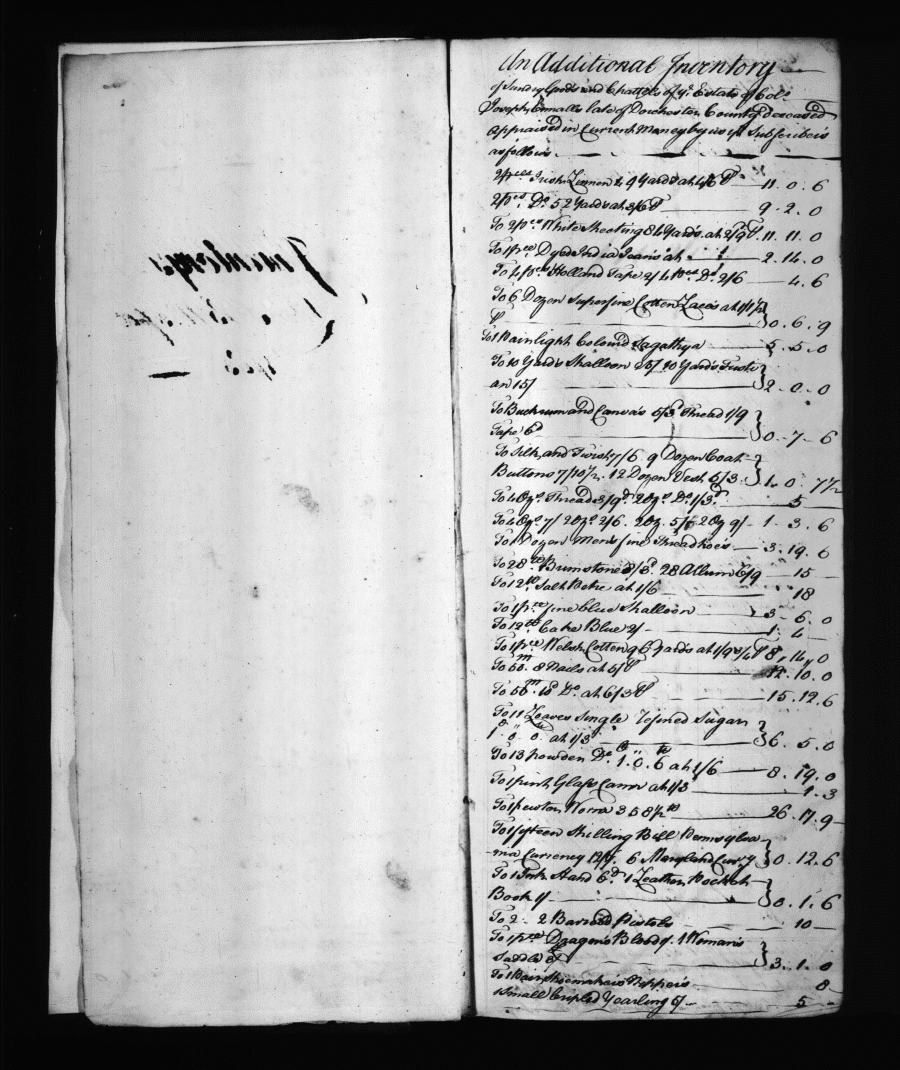 Inventory
An Additional Inventory
of Sundry Goods and Chattels of ye Estate of Colo
Joseph Ennalls late of Dorchester County deceased
Appraised in Current Money by us ye Subscribers
as follows
2 ps Irish Linnen 49 Yards at 4/6 P 11. 0. 6
2 ps Do 52 Yards at 3/6 P 9. 2. 0
To 2 ps White Sheeting 84 Yards at 2/9 P. 11. 11. 0
To 1 pce Dyed India Jeans at 2. 14. 0
To 4 ps Holland Tape 2/ 4 ps Do 2/6 4. 6
To 6 Dozon Superfine Cotton Laces at 1/1½
P 0. 6. 9
To 1 Pain light Colourd Sagathya 5. 5. 0
To 10 Yards Shalloon 25/ 10 Yards Fusti
an 15/ 2. 0. 0
To Buckrum and Canvas 5/3 Thread 1/9
Tape 6d 0. 7. 6
To Silk and Twist 7/6 9 Dozon Coat
Buttons 7/10½. 12 Dozon Vest 5/3 1. 0. 7½
To 4 Ozs Thread 3/9d. 2 Ozs Do 1/3d 5
To 4 Ozs 7/ 2 Ozs 2/6. 2 Oz. 5/ 2 Oz 9/ 1. 3. 6
To 1 Dozon Mens fine Thread hoes 3. 19. 6
To 28 lb Brimstone 8/3d 28 Allum 6/9 15
To 12 lb Salt Petre at 1/6 18
To 1 pce fine blue Shalloon 3. 6. 0
To 12 lb Cake Blue 2/ 1. 4
To 1 pce Welsh Cotten 96 Yards at 1/9¾ P 8. 14. 0
To 50m. 8 Nails at 5/ P 12. 10. 0
To 50m. 10d Do at 6/3 P 15. 12. 6
To 11 Loaves Single refined Sugar
at 1/3 6. 5. 0
To 13 powden Do 1. 0. 6 at 1/6 8. 19. 0
To 1 pint Glass Cann at 1/3 1. 3
To 1 pewter Worm 358½ lb 26. 17. 9
To 1 fifteen Shilling Bill Pennsylva
nia Currency 12/ 6 Maryland Curry 0. 12. 6
To 1 Ink Stand 6d 1 Leather Pocket
Book 1/ 0. 1. 6
To 2 - 2 Barroed Pistols 10
To 1 pce Dragons Blood /. 1 Womans
Saddle 3. 1. 0
To 1 Pair Shoemakers Nippers 8
1 Small Cripled Yearling 5/ 5